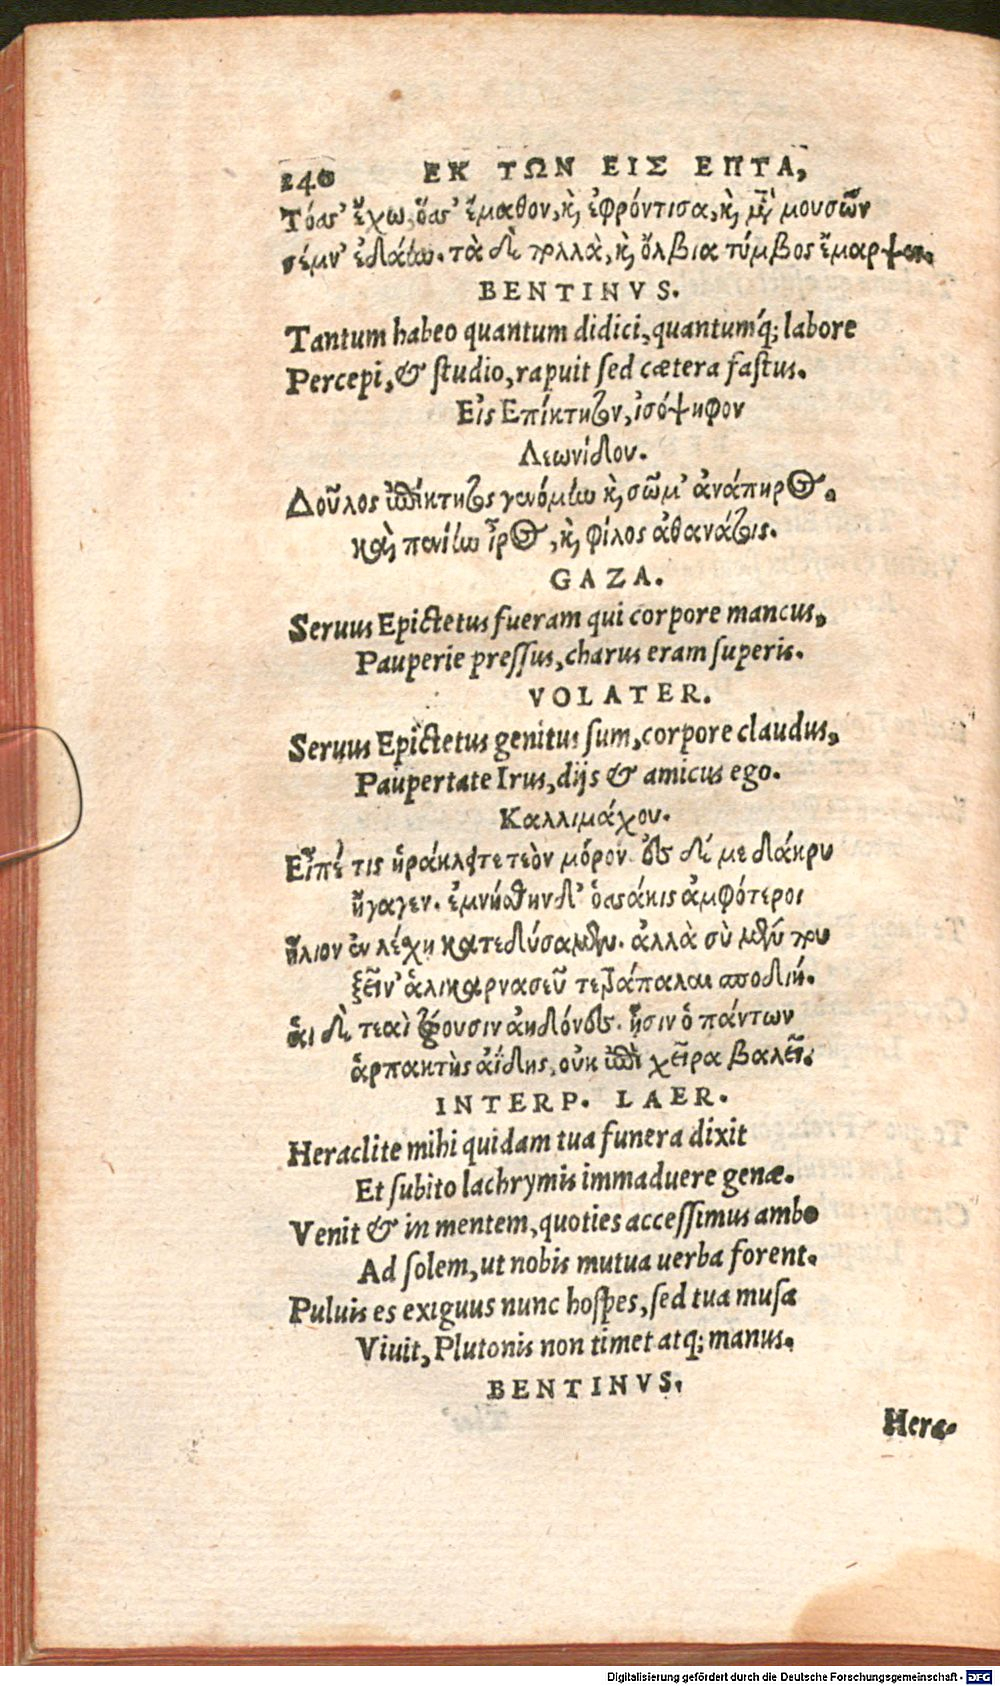 240 ΕΚ ΤΩΝ ΕΙΣ ΕΠΤΑ,
Τόασ' ἔχω, ὅασ' ἔμαθον, κὶ ἐφρόντισα, κὶ μῦ μουσῶν
σέμν' ἐδάlω. τὰ δὲ πολλὰ, κὶ ὄλβια τύμβος ἔμαρψεν.
BENTINVS.
Tantum habeo quantum didici, quantumq́; labore
Percepi, & studio, rapuit sed cætera fastus.
Εἰς Επίκτητον, ἰσόψηφον
Λεωνίδου.
Δοῦλος ἐπίκτητος γενόμην κὶ σῶμ' ἀνάπηρος.
καὶ πενίην ἶρος, κὶ φίλος ἀθανάτοις.
GAZA.
Seruus Epictetus fueram qui corpore mancus,
Pauperie pressus, charus eram superis.
VOLATER.
Seruus Epictetus genitus sum, corpore claudus,
Paupertate Irus, dijs & amicus ego.
Καλλιμάχου.
Εἶπέ τις ἡράκλειτε τεὸν μόρον. ἐς δέ με δάκρυ
ἤγαγεν. ἐμνήσθην δ' ὁσάκις ἀμφότεροι
ἥλιον ἐν λέχῃ κατεδύσαμεν. ἀλλὰ σὺ μέν που
ξεῖν' ἁλικαρνασεῦ τετράπαλαι σποδιή.
ἁι δὲ τεαὶ ζώουσιν ἀηδόνες. ᾗσιν ὁ πάντων
ἁρπακτὴς ἀΐδης, οὐκ ἐπὶ χεῖρα βαλεῖ.
INTERP. LAER.
Heraclite mihi quidam tua funera dixit
Et subito lachrymis immaduere genæ.
Venit & in mentem, quoties accessimus ambo
Ad solem, ut nobis mutua uerba forent.
Puluis es exiguus nunc hospes, sed tua musa
Viuit, Plutonis non timet atq; manus.
BENTINVS.
Hera-
Digitalisierung gefördert durch die Deutsche Forschungsgemeinschaft - DFG